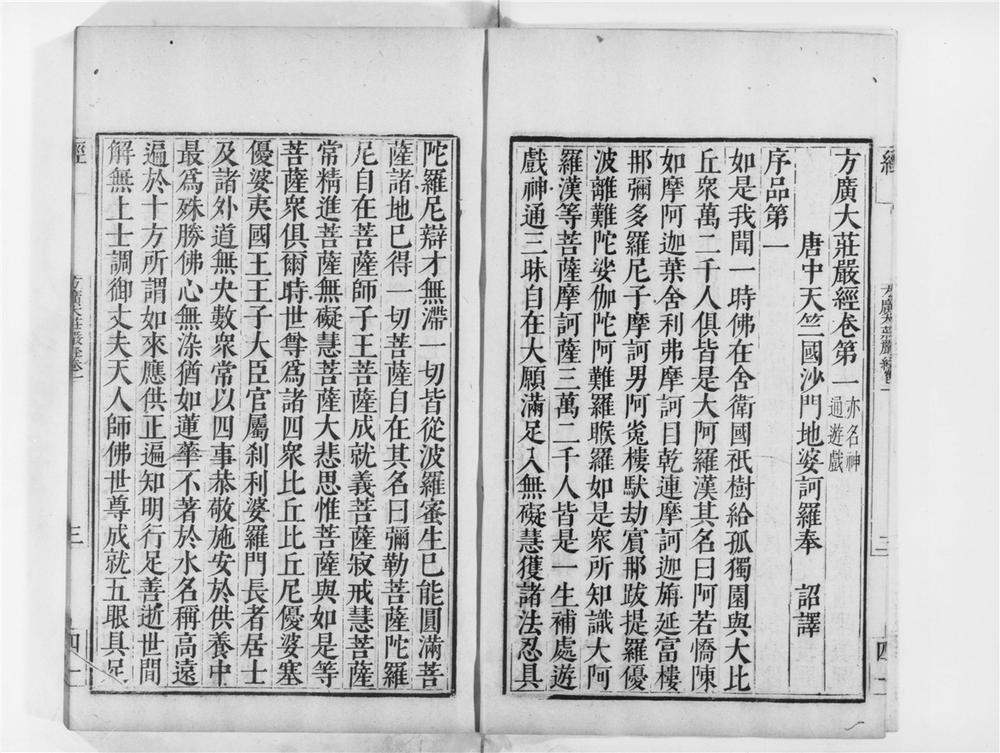 方廣大莊嚴經卷第一亦名神通遊戲
唐中天竺國沙門地婆訶羅奉 詔譯
序品第一
如是我聞一時佛在舍衛國祇樹給孤獨園與大比
丘衆萬二千人俱皆是大阿羅漢其名曰阿若憍陳
如摩訶迦葉舍利弗摩訶目乾連摩訶迦旃延富樓
那彌多羅尼子摩訶男阿㝹樓馱劫賓那跋提羅優
波離難陀娑伽陀阿難羅睺羅如是衆所知識大阿
羅漢等菩薩摩訶薩三萬二千人皆是一生補處遊
戲神通三昧自在大願滿足入無礙慧獲諸法忍具
陀羅尼辯才無滯一切皆從波羅蜜生已能圓滿菩
薩諸地已得一切菩薩自在其名曰彌勒菩薩陀羅
尼自在菩薩師子王菩薩成就義菩薩寂戒慧菩薩
常精進菩薩無礙慧菩薩大悲思惟菩薩與如是等
菩薩衆俱爾時世尊爲諸四衆比丘比丘尼優婆塞
優婆夷國王王子大臣官屬刹利婆羅門長者居士
及諸外道無央數衆常以四事恭敬施安於供養中
最爲殊勝佛心無染猶如蓮華不著於水名稱高遠
遍於十方所謂如來應供正遍知明行足善逝世間
解無上士調御丈夫天人師佛世尊成就五眼具足